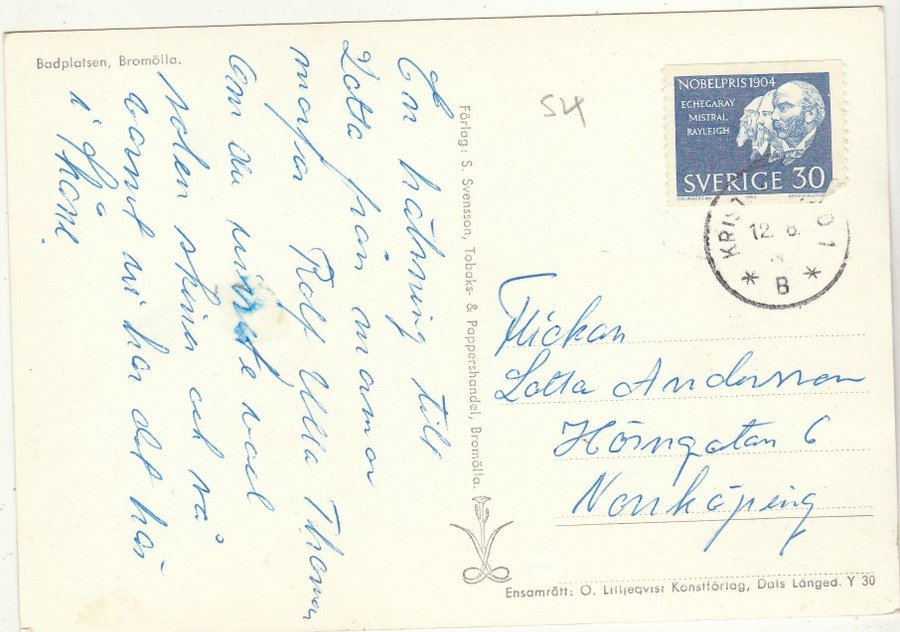 Badplatsen, Bromölla.
En hälsning till
Lotta från mamma
morfar Rolf Ulla Thomas
Om du visste vad
solen skina och så
varmt vi har det här
i Skåne
Förlag: S. Svensson, Tobaks- & Pappershandel, Bromölla.
54
NOBELPRIS 1904
ECHEGARAY
MISTRAL
RAYLEIGH
SVERIGE 30
12. 8.
* B *
Flickan
Lotta Andersson
Hörngatan 6
Norrköping
Ensamrätt: O. Lilljeqvist Konstförlag, Dals Långed. Y 30